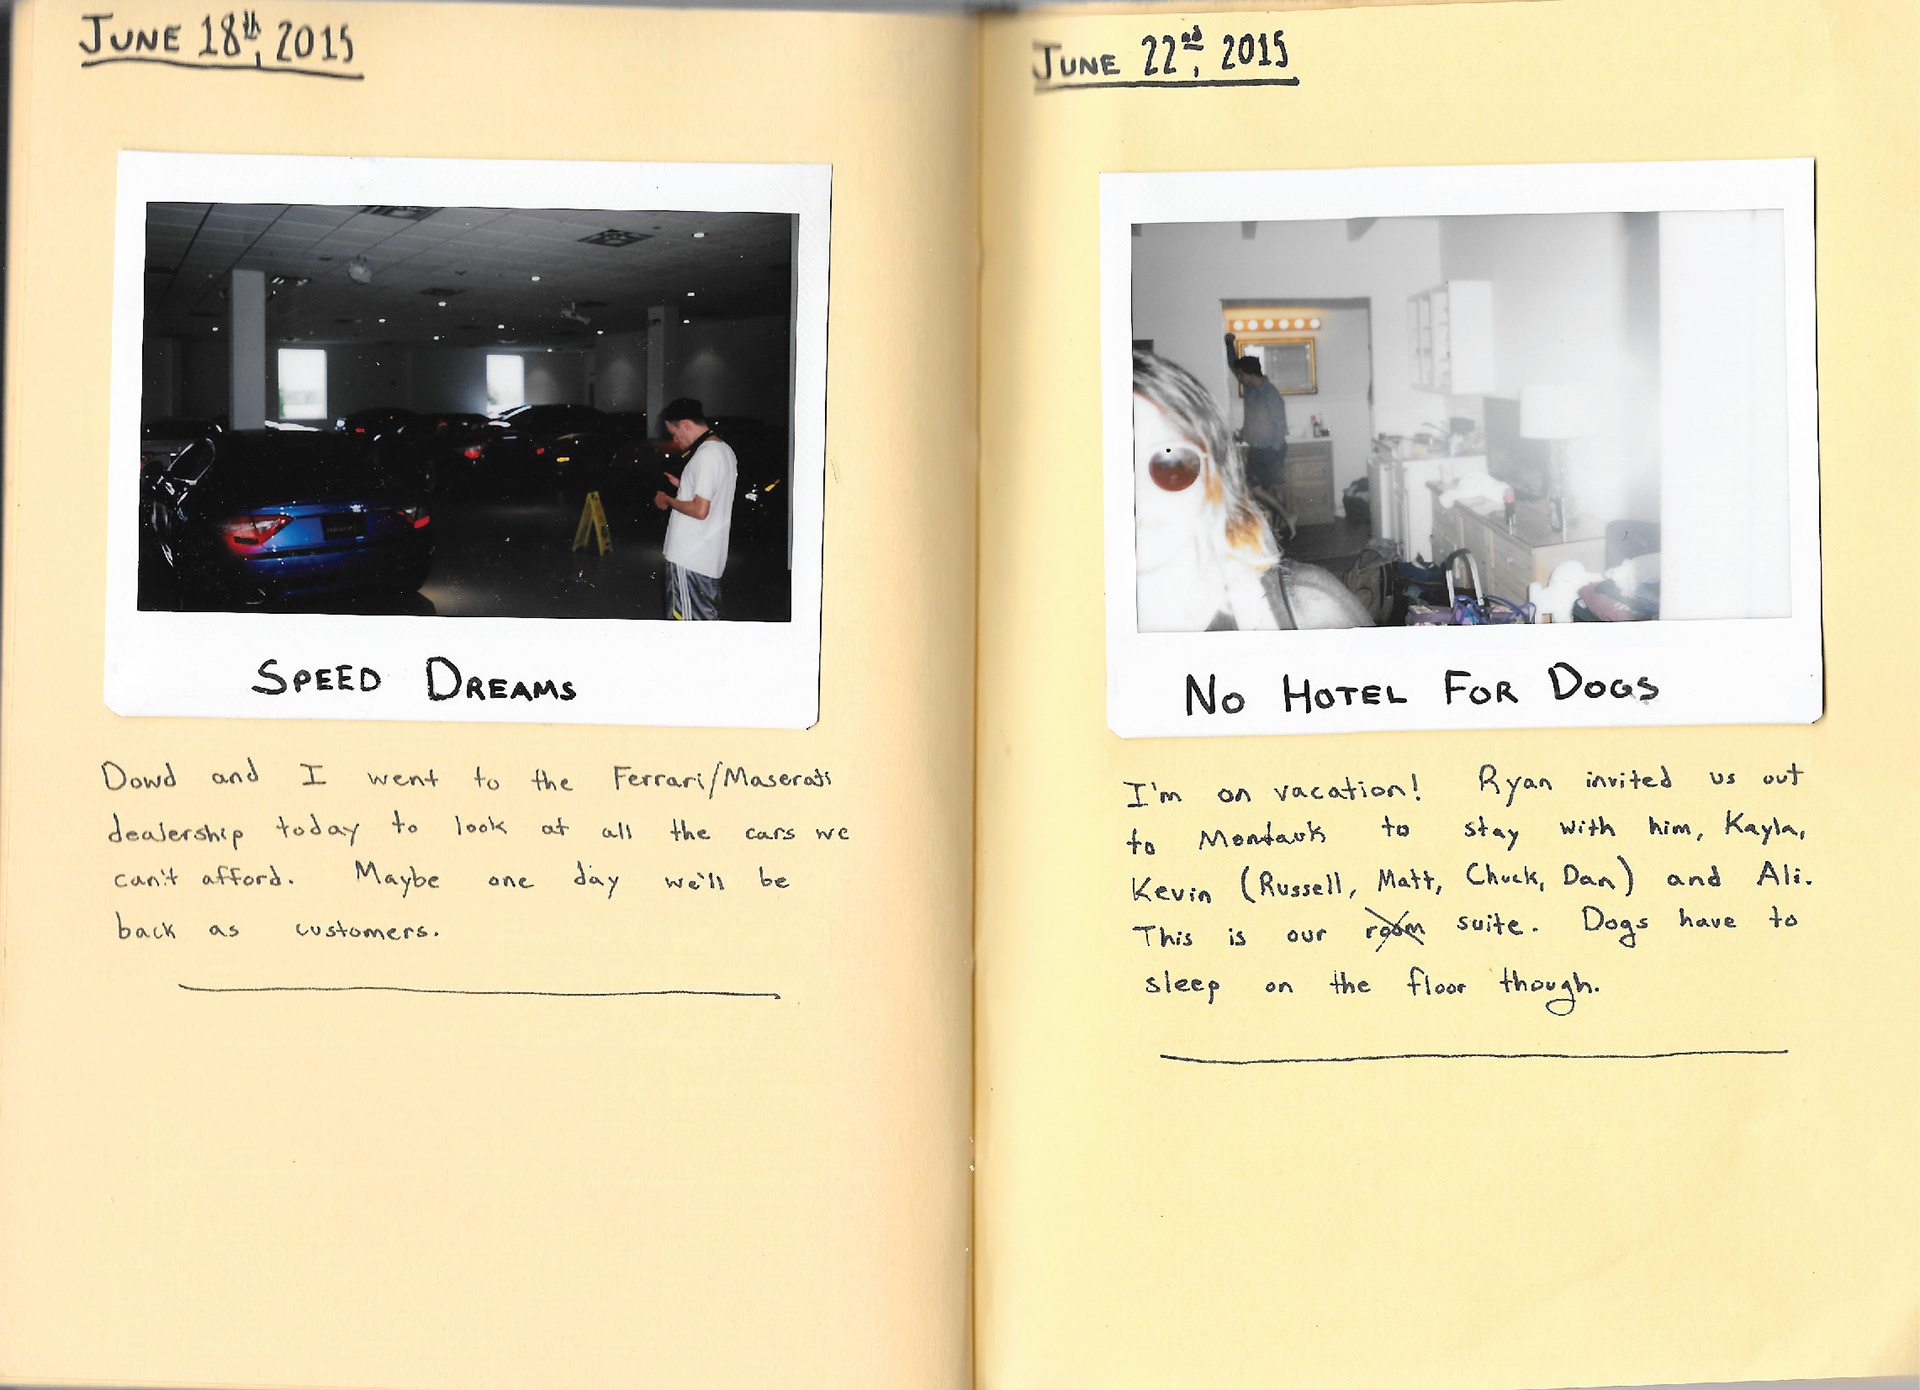 JUNE 18th, 2015
SPEED DREAMS
Dowd and I went to the Ferrari/Maserati
dealership today to look at all the cars we
can't afford. Maybe one day we'll be
back as customers.
JUNE 22nd, 2015
NO HOTEL FOR DOGS
I'm on vacation! Ryan invited us out
to Montauk to stay with him, Kayla,
Kevin (Russell, Matt, Chuck, Dan) and Ali.
This is our room suite. Dogs have to
sleep on the floor though.